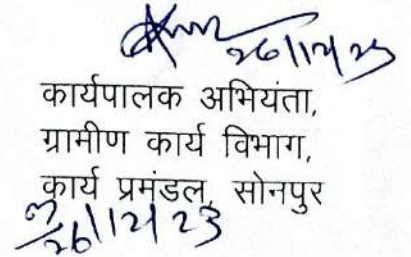 26/12/23
कार्यपालक अभियंता,
ग्रामीण कार्य विभाग,
कार्य प्रमंडल, सोनपुर
26/12/23